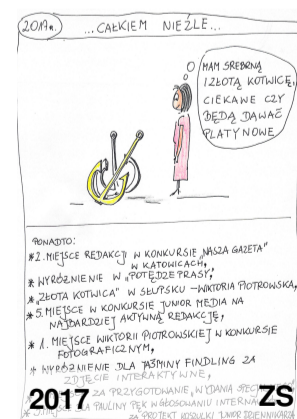 2017r. ...CAŁKIEM NIEŹLE...
MAM SREBRNĄ
I ZŁOTĄ KOTWICĘ,
CIEKAWE CZY
BĘDĄ DAWAĆ
PLATYNOWE
PONADTO:
* 2. MIEJSCE REDAKCJI W KONKURSIE "NASZA GAZETA"
W KATOWICACH,
* WYRÓŻNIENIE W "POTĘDZE PRASY",
* "ZŁOTA KOTWICA" W SŁUPSKU – WIKTORIA PIOTROWSKA,
* 5. MIEJSCE W KONKURSIE JUNIOR MEDIA NA
NAJBARDZIEJ AKTYWNĄ REDAKCJĘ,
* 1. MIEJSCE WIKTORII PIOTROWSKIEJ W KONKURSIE
FOTOGRAFICZNYM,
* WYRÓŻNIENIE DLA JAŚMINY FINDLING ZA
ZDJĘCIE INTERAKTYWNE,
ZA PRZYGOTOWANIE WYDANIA
DLA PAULINY PĘK W GŁOSOWANIU
ZA PROJEKT KOSZULKI JUNIOR DZIENNIKARZA
2017 ZS